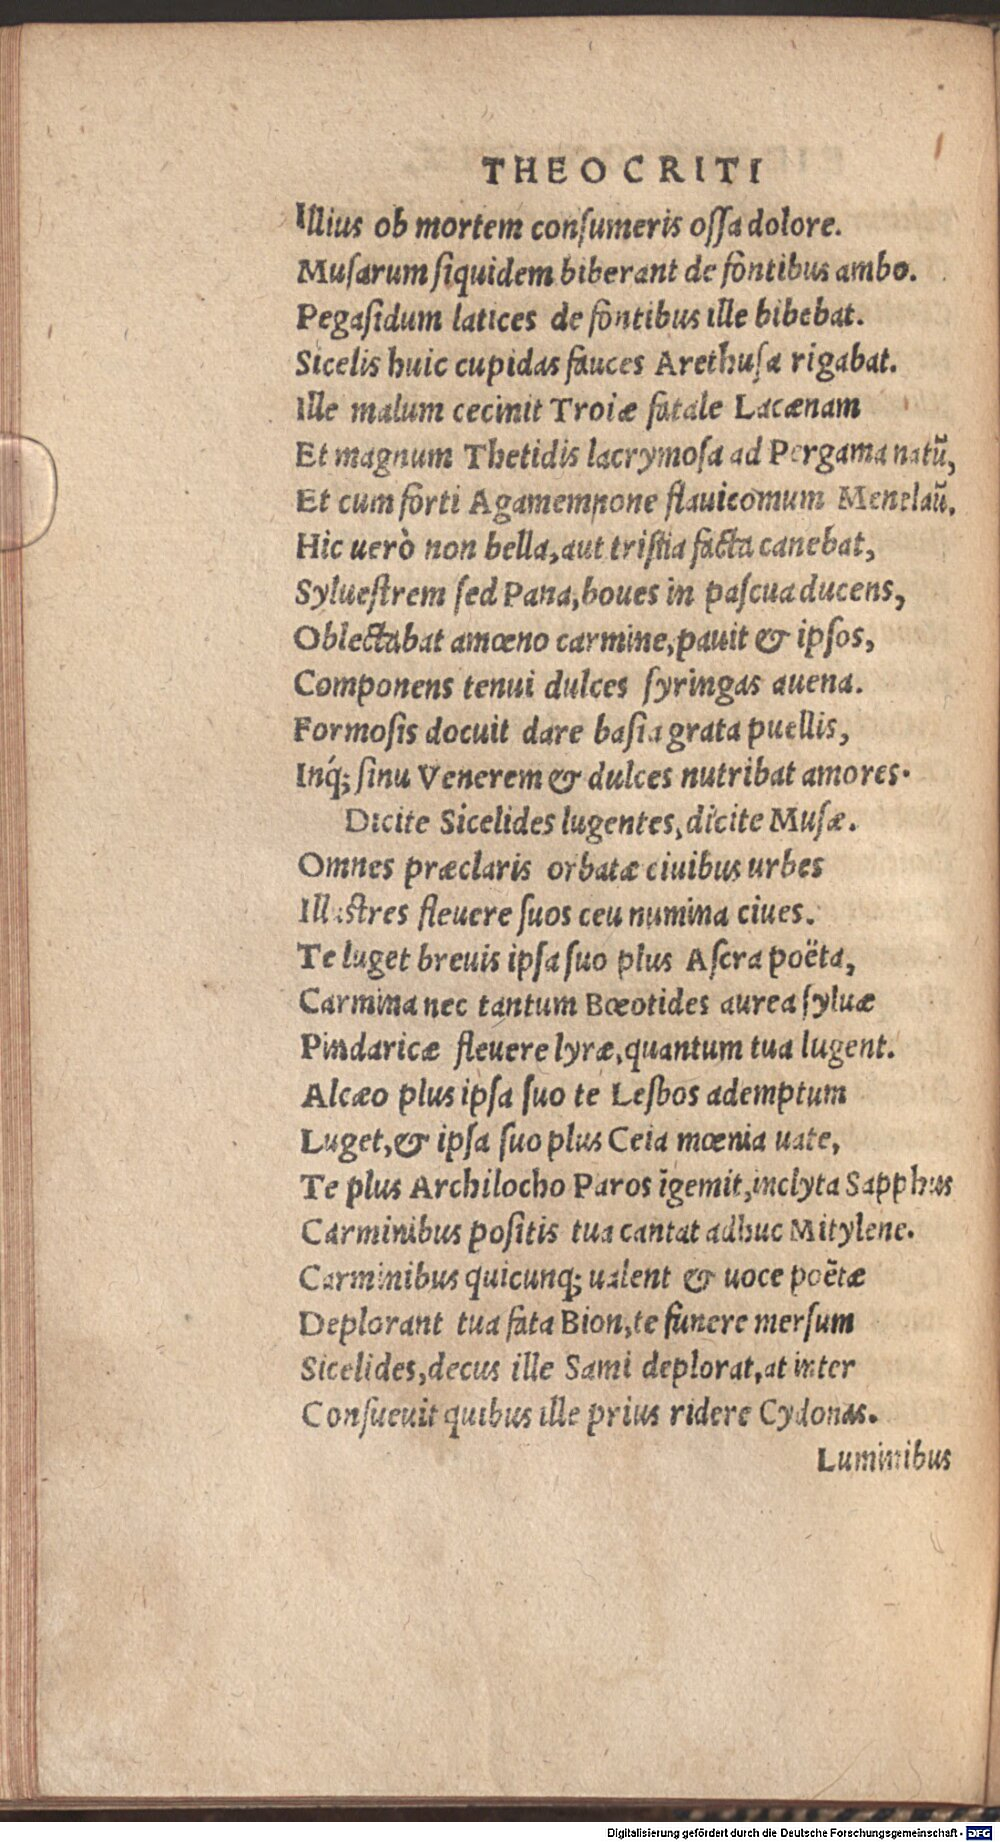 THEOCRITI
Illius ob mortem conſumeris oſſa dolore.
Muſarum ſiquidem biberant de fontibus ambo.
Pegaſidum latices de fontibus ille bibebat.
Sicelis huic cupidas fauces Arethuſa rigabat.
Ille malum cecinit Troiæ fatale Lacænam
Et magnum Thetidis lacrymoſa ad Pergama natũ,
Et cum forti Agamemnone flauicomum Menelaũ.
Hic uerò non bella, aut triſtia facta canebat,
Sylueſtrem ſed Pana, boues in paſcua ducens,
Oblectabat amœno carmine, pauit & ipſos,
Componens tenui dulces ſyringas auena.
Formoſis docuit dare baſia grata puellis,
Inq́; ſinu Venerem & dulces nutribat amores.
Dicite Sicelides lugentes, dicite Muſæ.
Omnes præclaris orbatæ ciuibus urbes
Illuſtres fleuere ſuos ceu numina ciues.
Te luget breuis ipſa ſuo plus Aſcra poëta,
Carmina nec tantum Bœotides aurea ſyluæ
Pindaricæ fleuere lyræ, quantum tua lugent.
Alcæo plus ipſa ſuo te Leſbos ademptum
Luget, & ipſa ſuo plus Ceia mœnia uate,
Te plus Archilocho Paros ĩgemit, inclyta Sapphus
Carminibus poſitis tua cantat adhuc Mitylene.
Carminibus quicunq; ualent & uoce poëtæ
Deplorant tua fata Bion, te funere merſum
Sicelides, decus ille Sami deplorat, at inter
Conſueuit quibus ille prius ridere Cydonas.
Luminibus
Digitalisierung gefördert durch die Deutsche Forschungsgemeinschaft - DFG